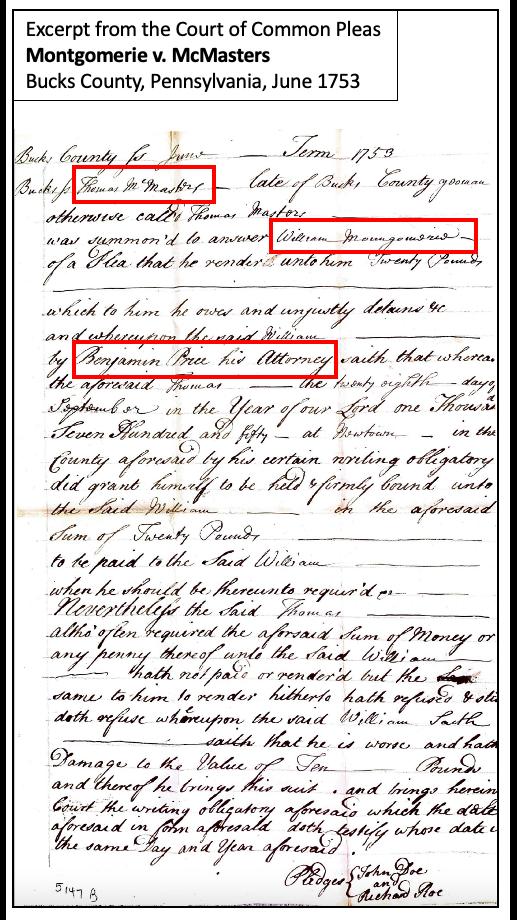 Excerpt from the Court of Common Pleas
Montgomerie v. McMasters
Bucks County, Pennsylvania, June 1753
Bucks County ss June Term 1753
Bucks ss Thomas McMasters late of Bucks County yeoman
otherwise call'd Thomas Masters
was summon'd to answer William Moungomerie
of a Plea that he render unto him Twenty Pounds
which to him he owes and unjustly detains &c
and whereupon the said William
by Benjamin Price his Attorney saith that whereas
the aforesaid Thomas the twenty eighth day of
September in the Year of our Lord one Thousand
Seven Hundred and fifty at Newtown in the
County aforesaid by his certain writing obligatory
did grant himself to be held & firmly bound unto
the Said William in the aforesaid
Sum of Twenty Pounds
to be paid to the Said William
when he should be thereunto requir'd
Nevertheless the Said Thomas
altho' often required the aforsaid Sum of Money or
any penny thereof unto the Said William
hath not paid or render'd but the
same to him to render hitherto hath refused & still
doth refuse whereupon the said William Saith
saith that he is worse and hath
Damage to the Value of Ten Pounds
and thereof he brings this suit and brings herein
Court the writing obligatory aforesaid which the debt
aforesaid in form aforesaid doth testify whose date is
the same Day and Year aforesaid.
Pledges John Doe
and
Richard Roe
5147 B